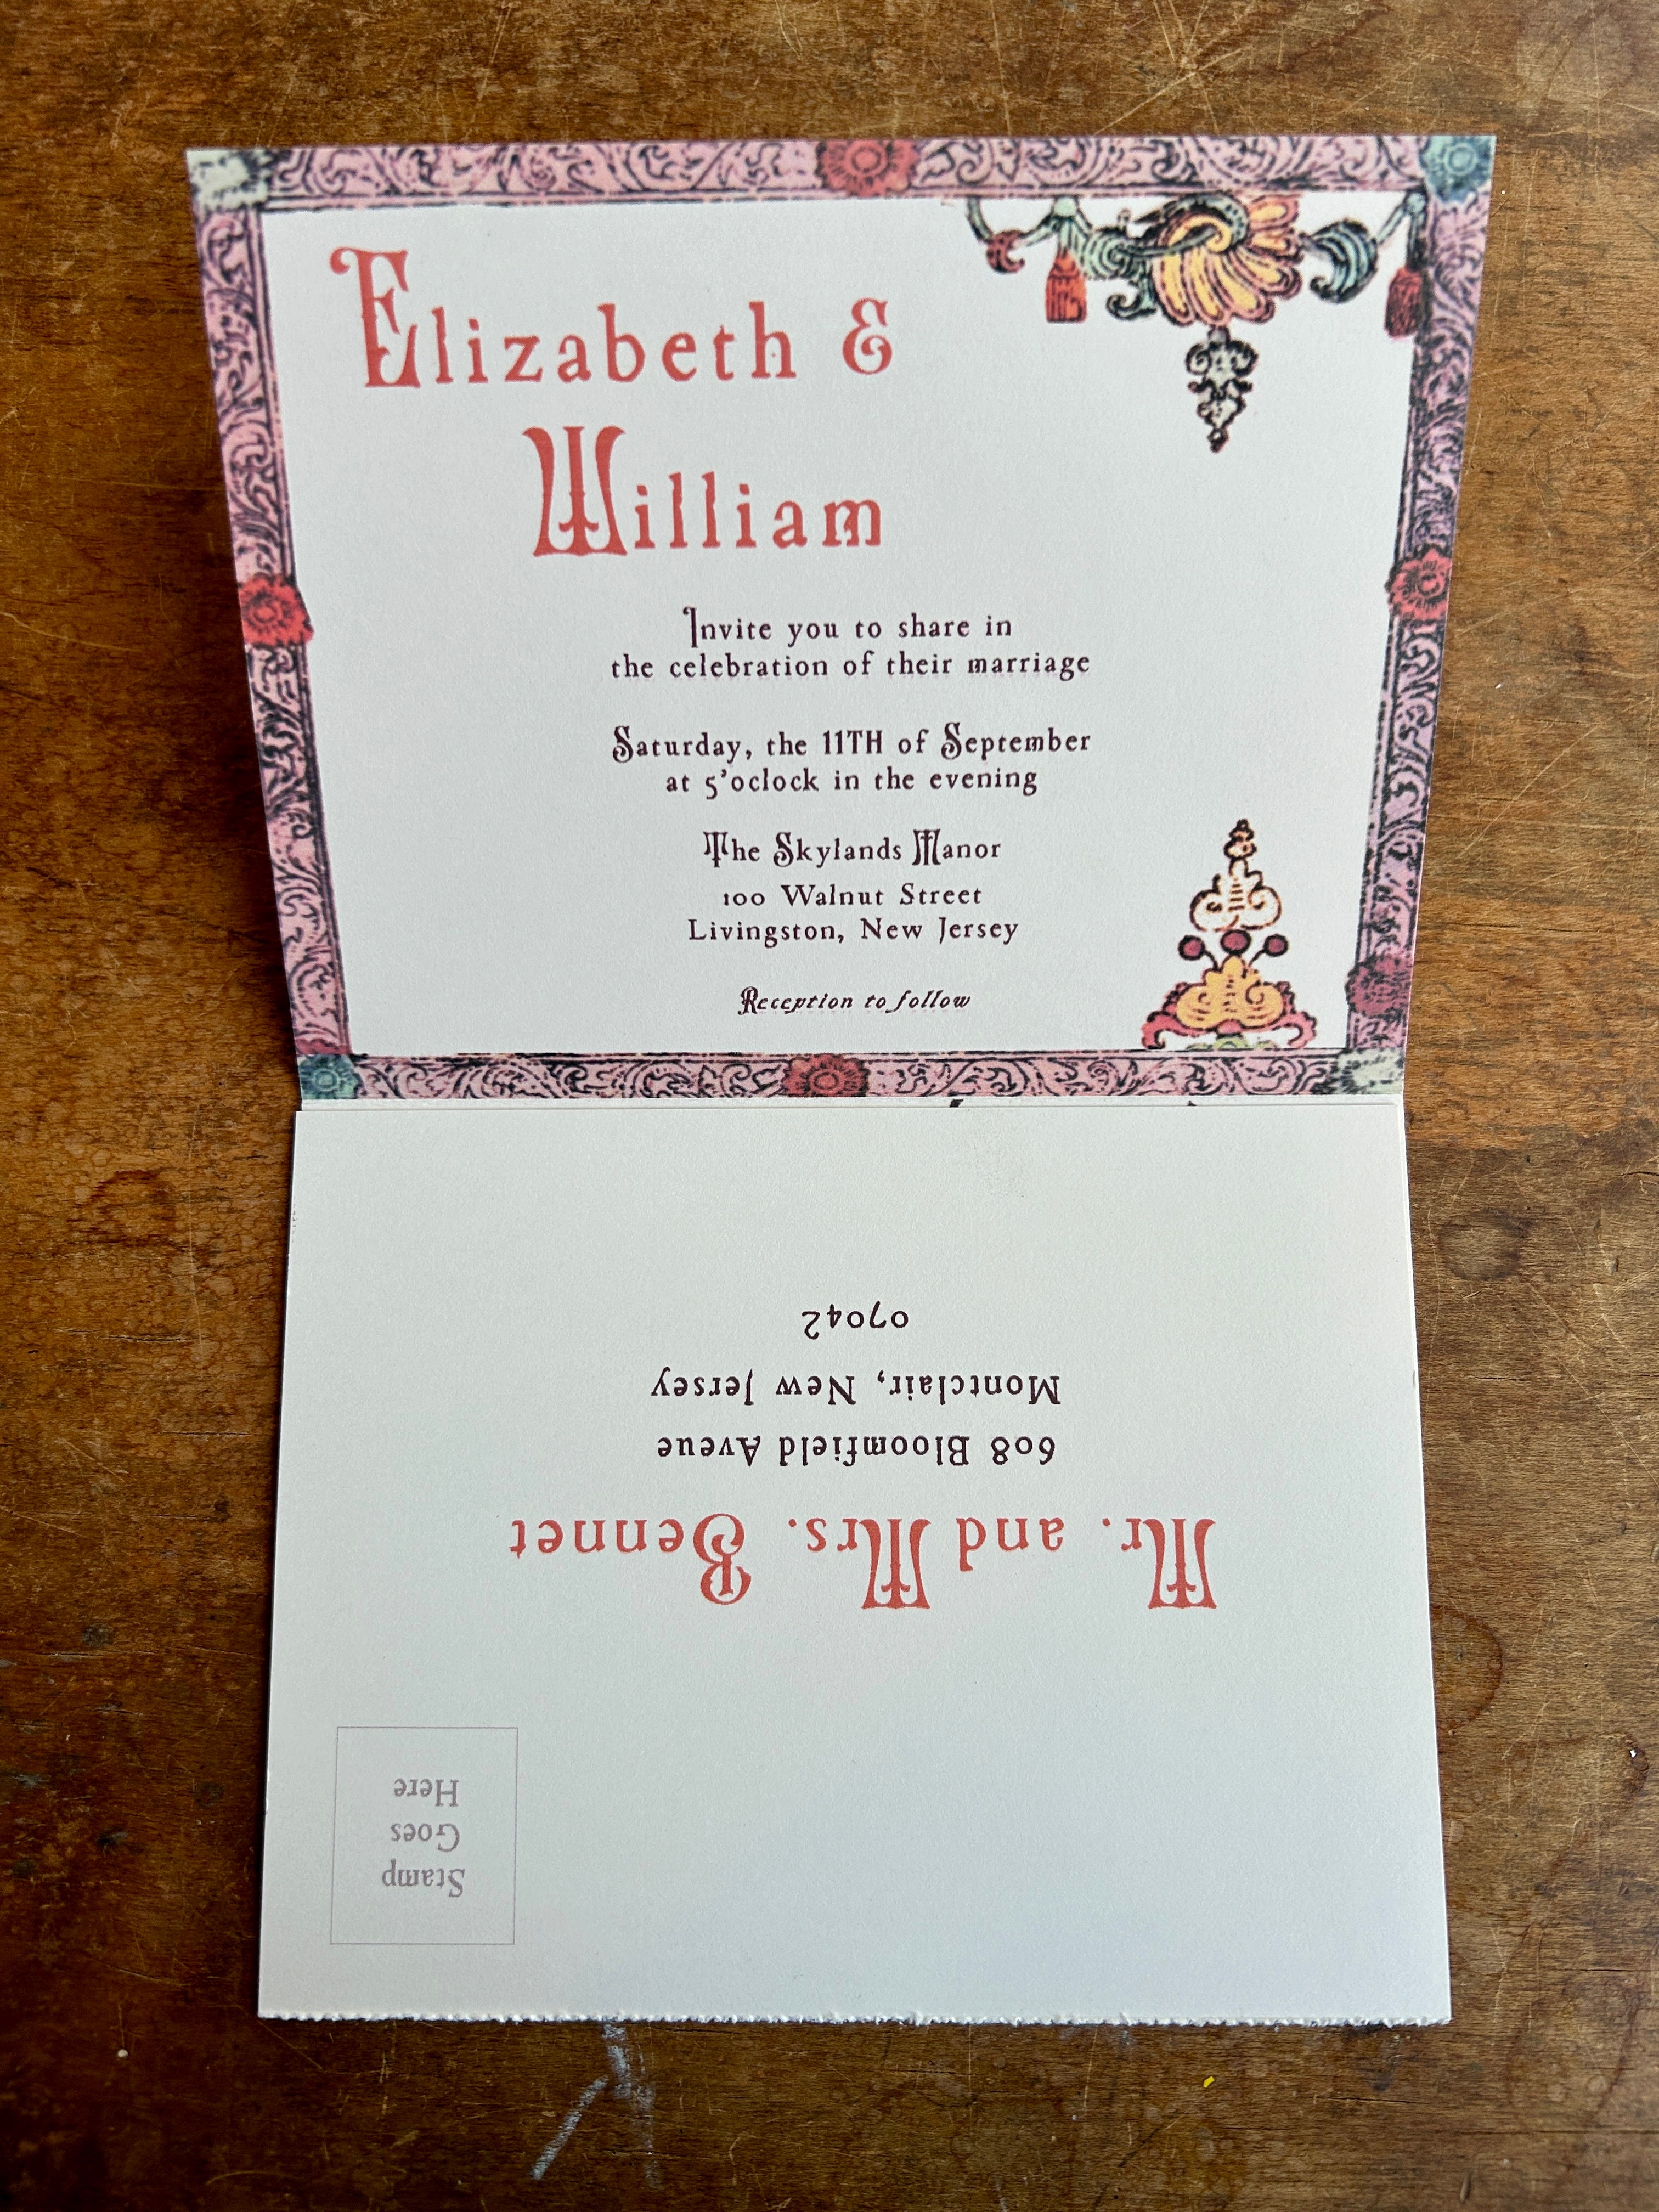 Elizabeth &
William
Invite you to share in
the celebration of their marriage
Saturday, the 11TH of September
at 5'oclock in the evening
The Skylands Manor
100 Walnut Street
Livingston, New Jersey
Reception to follow
Stamp
Goes
Here
Mr. and Mrs. Bennet
608 Bloomfield Aveue
Montclair, New Jersey
07042